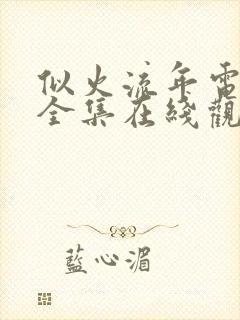 似火流年電
全集在綫觀
藍心湄